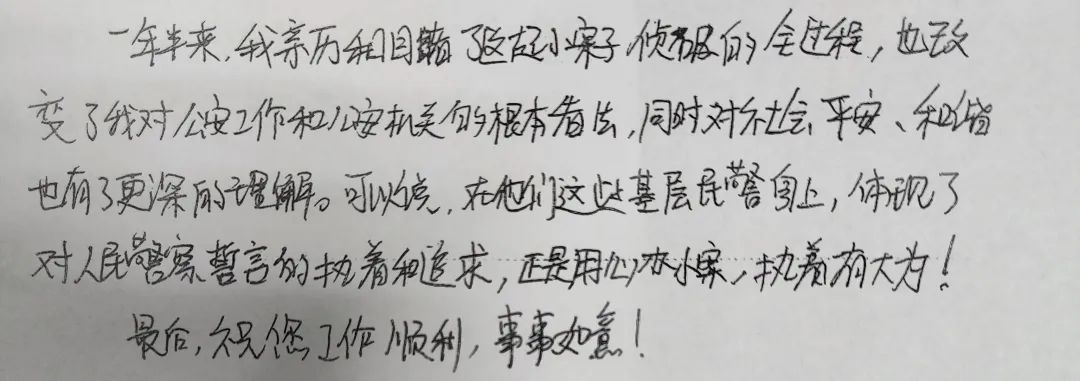 一年半来,我亲历和目睹了这起小案子侦破的全过程,也改
变了我对公安工作和公安机关的根本看法,同时对社会平安、和谐
也有了更深的理解。可以说,在他们这些基层民警身上,体现了
对人民警察誓言的执着和追求,正是用心办小案,执着有大为!
最后,祝您工作顺利,事事如意!